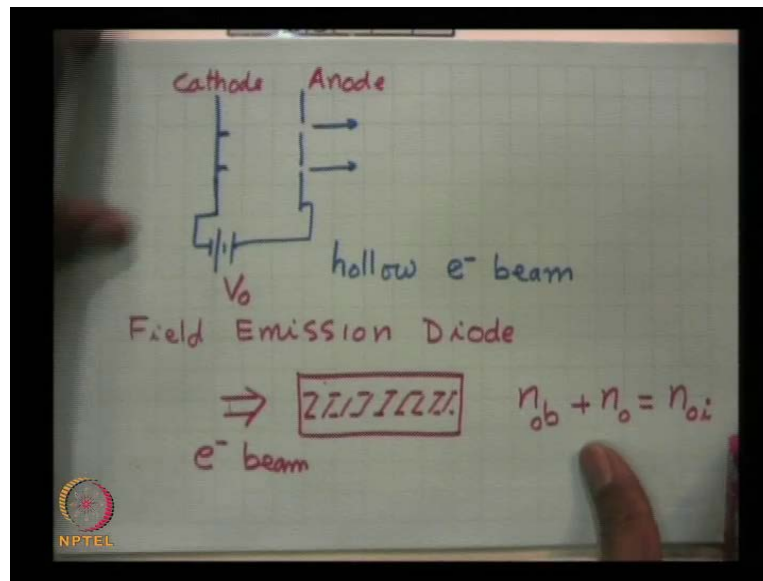 Cathode Anode
V₀
hollow e⁻ beam
Field Emission Diode
e⁻ beam
n₀b + n₀ = n₀i
NPTEL